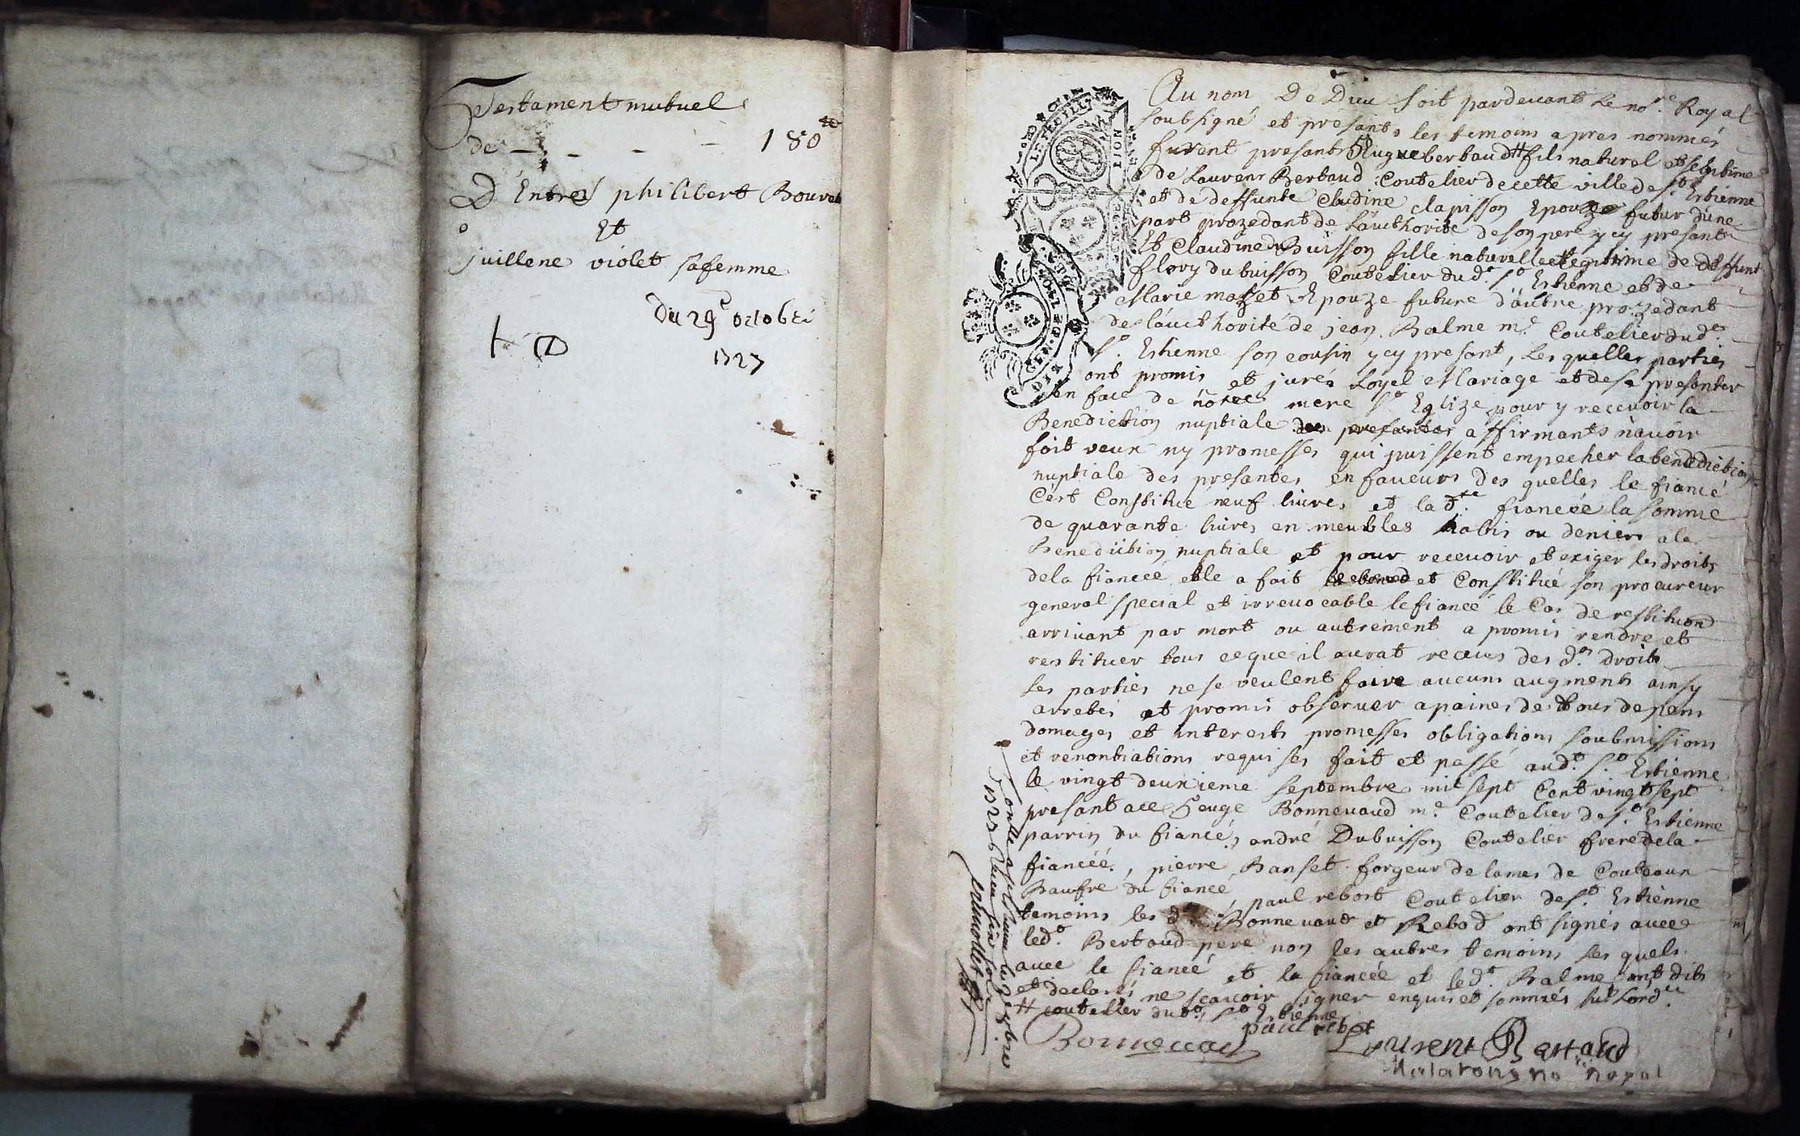 Testament mutuel
de - - - - 180
D'Entre philibert Bouvet
Et
juillene violet safemme
du 29e octobre
1727
Au nom De Dieu soit pardevant le nore Royal
soubsigné et presants les temoins apres nommés
furent presants hugue bertaud # fils naturel et legitime
de Laurens Bertaud Coutelier decette ville de St Estienne
et de deffunte Claudine clapisson Epouze futur d'une
part prozedant de L'authorité de son pere ycy presant
Et Claudine du Buisson fille naturelle et legitime de deffunt
flory du buisson Coutelier dud. St Estienne et de
Marie mazet Epouze future d'autre prozedant
de l'aucthorité de jean Balme me Coutelier dud.
St Estienne son cousin ycy presant, Lesquelles parties
ont promis et jurés Loyel Mariage et de se presenter
en face de notre mere Ste Eglize pour y recevoir la
Benediction nuptiale affirmants n'avoir
fait veux ny promesses qui puissent empecher la benediction
nuptiale des presantes en faveurs des quelles le fiancé
C'est Constitué neuf livres et la dte fiancée la somme
de quarante livres en meubles habis ou deniers a la
Benediction nuptiale et pour recevoir et exiger les droits
dela fiancée elle a fait et Constitué son procureur
general special et irrevocable le fiancé le Cas de restituond
arrivant par mort ou autrement a promis rendre et
restituer tous ce que il aurat receus des ds droits
Les parties ne se veulent faire aucuns augments ainsy
arretés et promis observer a paines de tous depens
domages et interests promesses obligations soubmissions
et renontiations requises fait et passé aud. St Estienne
le vingt deuxieme septembre mil sept Cent vingt sept
presant a ce heuge Bonnevaud me Coutelier de St Estienne
parrin du fiancé, andré Dubuisson Coutelier frere de la
fiancée, pierre Banset forgeur de lames de Couteaux
Baufre du fiancé, paul rebort Coutelier de St Estienne
temoins les d. Bonnevaud et Rebod ont signés avec
led. Bertaud pere non les autres temoins Les quels
avec le fiancé et la fiancée et led. Balme ont dits
et declarés ne scavoir signer enquis et sommés suit Lord.ce
# coutellier dud. St Estienne
paul rebot
Bonnevaud
Laurent Bertaud
Malaron no re royal